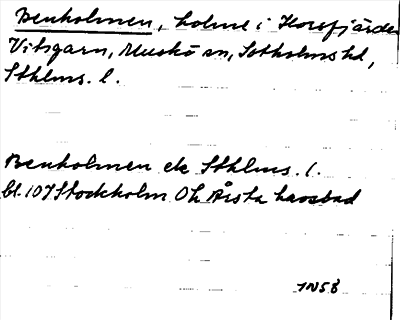 Benholmen, holme i Horsfjärden
Vitsgarn, Muskö sn, Sotholms hd,
Sthlms. l.
Benholmen ek Sthlms. l.
bl. 107 Stockholm Årsta havsbad
1N58